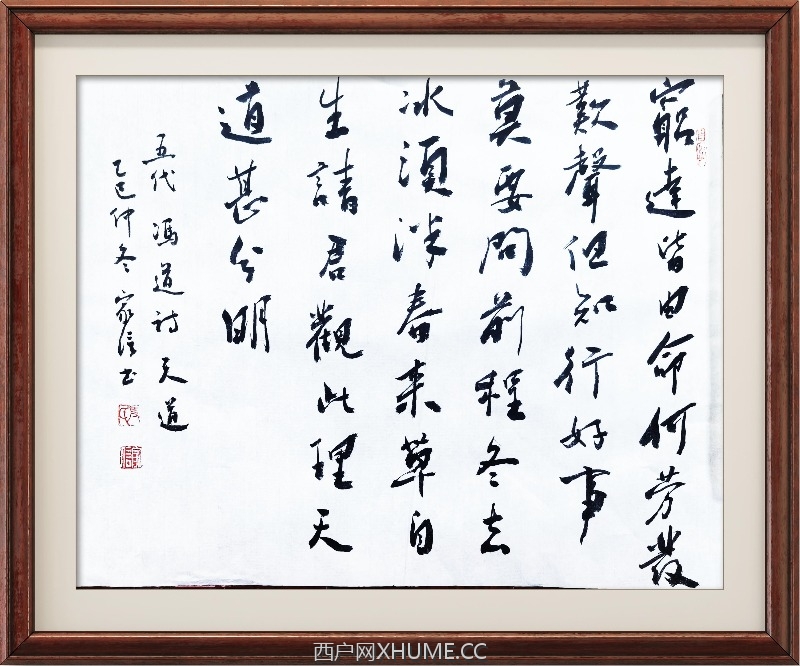 窮達皆由命何劳發
歎聲但知行好事
莫要問前程冬去
冰須泮春来草自
生請君觀此理天
道甚分明
五代 馮道詩天道
乙巳仲冬家信书
西户网XHUME.CC